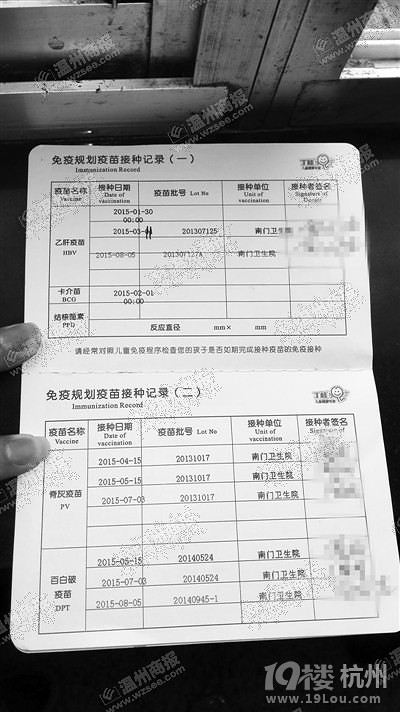 免疫规划疫苗接种记录（一）
Immunization Record
疫苗名称 接种日期 疫苗批号 Lot No 接种单位 接种者签名
Vaccine Date of vaccination Unit of vaccination Signature of
2015-01-30
00:00
乙肝疫苗 2015-03- 201307125 南门卫生院
HBV 2015-08-05 20130727A 南门卫生院
卡介苗 2015-02-01
BCG 00:00
结核菌素
PPD 反应直径 mm× mm
请经常对照儿童免疫程序检查您的孩子是否如期完成接种疫苗的免疫接种
免疫规划疫苗接种记录（二）
Immunization Record
疫苗名称 接种日期 疫苗批号 Lot No 接种单位 接种者签名
Vaccine Date of vaccination Unit of vaccination Signature of
2015-04-15 20131017 南门卫生院
2015-05-15 20131017 南门卫生院
脊灰疫苗 2015-07-03 20131017 南门卫生院
PV
百白破 2015-05-15 20140524 南门卫生院
疫苗 2015-07-03 20140524 南门卫生院
DPT 2015-08-05 20140945-1 南门卫生院
温州商报
www.wzsee.com
19楼 杭州
www.19Lou.com